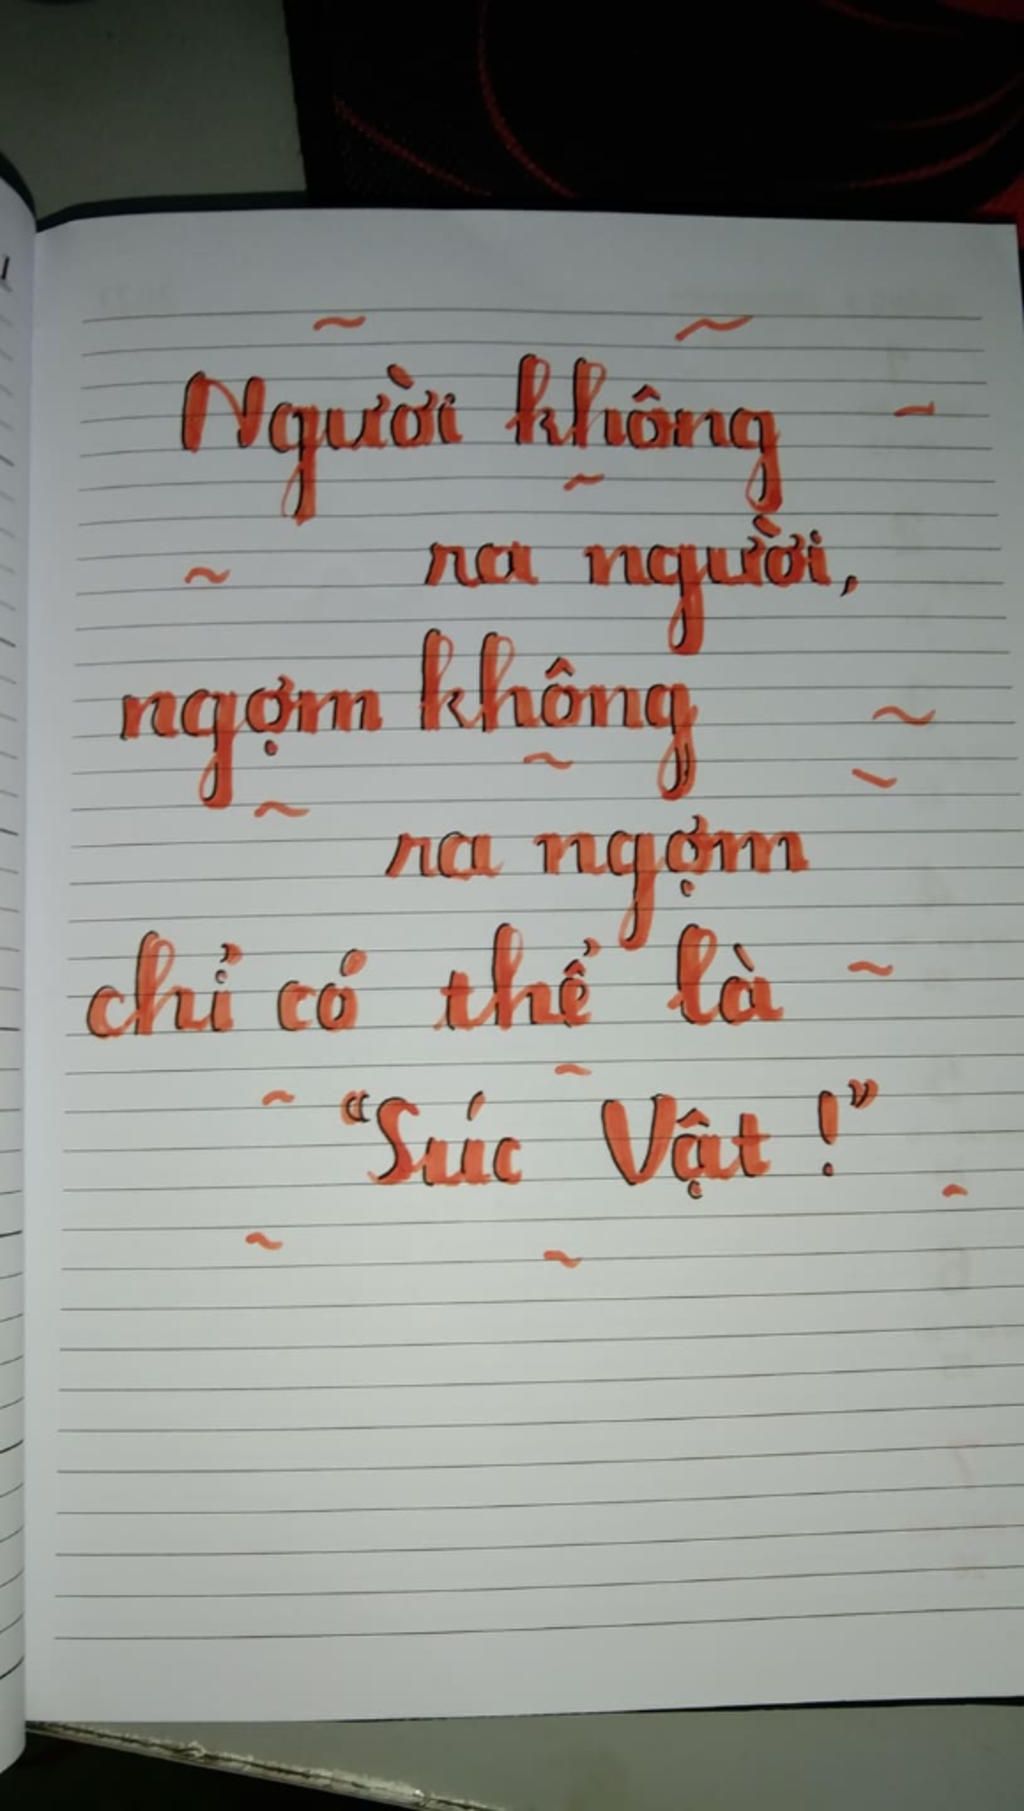 Người không
ra người,
ngợm không
ra ngợm
chỉ có thể là
“Súc Vật !”